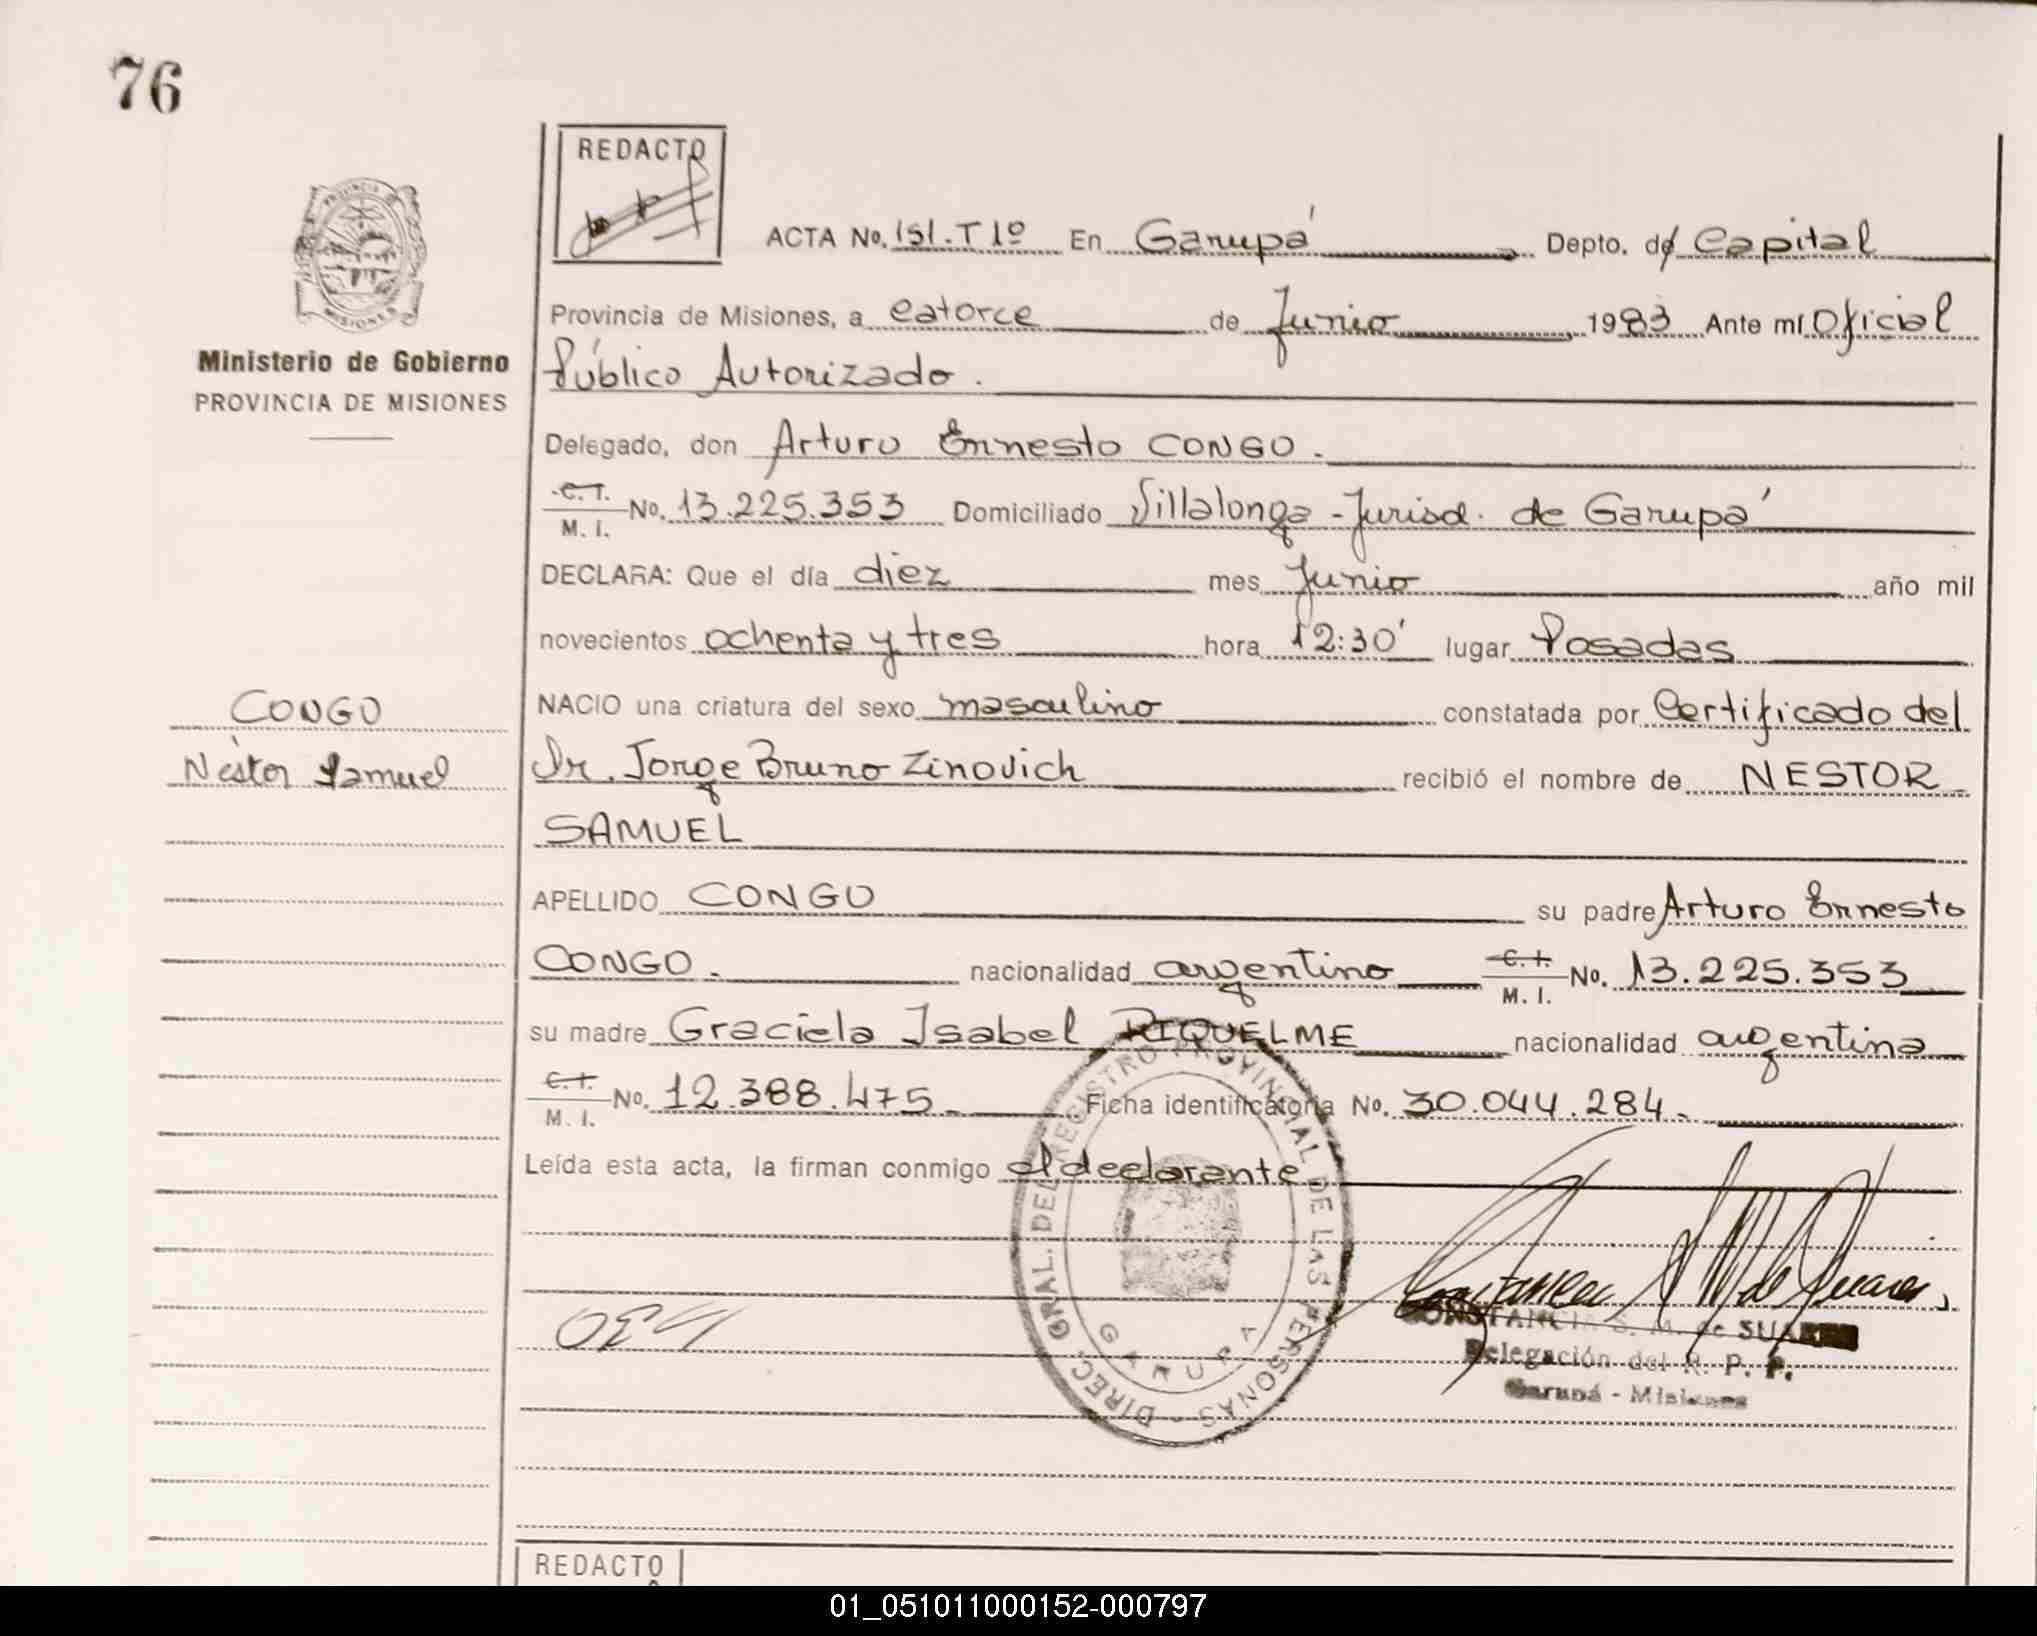 76
REDACTO
ACTA No. 151.T1º En Garupá Depto. de Capital
PROVINCIA DE
MISIONES
Provincia de Misiones, a catorce de Junio 1983 Ante mí Oficial
Ministerio de Gobierno
PROVINCIA DE MISIONES
Público Autorizado.
Delegado, don Arturo Ernesto CONGO.
C.I.
M. I. No. 13.225.353 Domiciliado Villalonga - Jurisd. de Garupá
DECLARA: Que el día diez mes Junio año mil
novecientos ochenta y tres hora 12:30' lugar Posadas
CONGO
Néstor Samuel
NACIO una criatura del sexo masculino constatada por Certificado del
Dr. Jorge Bruno Zinovich recibió el nombre de NESTOR
SAMUEL
APELLIDO CONGO su padre Arturo Ernesto
CONGO. nacionalidad argentino C.I. M. I. No. 13.225.353
su madre Graciela Isabel RIQUELME nacionalidad argentina
C.I. M. I. No. 12.388.475. Ficha identificatoria No. 30.044.284.
Leída esta acta, la firman conmigo el declarante
DIREC. GRAL. DEL REGISTRO PROVINCIAL DE LAS PERSONAS -
GARUPA
CONSTANCIA S. M. de SUAREZ
Delegación del R. P. P.
Garupá - Misiones
REDACTO
01_051011000152-000797